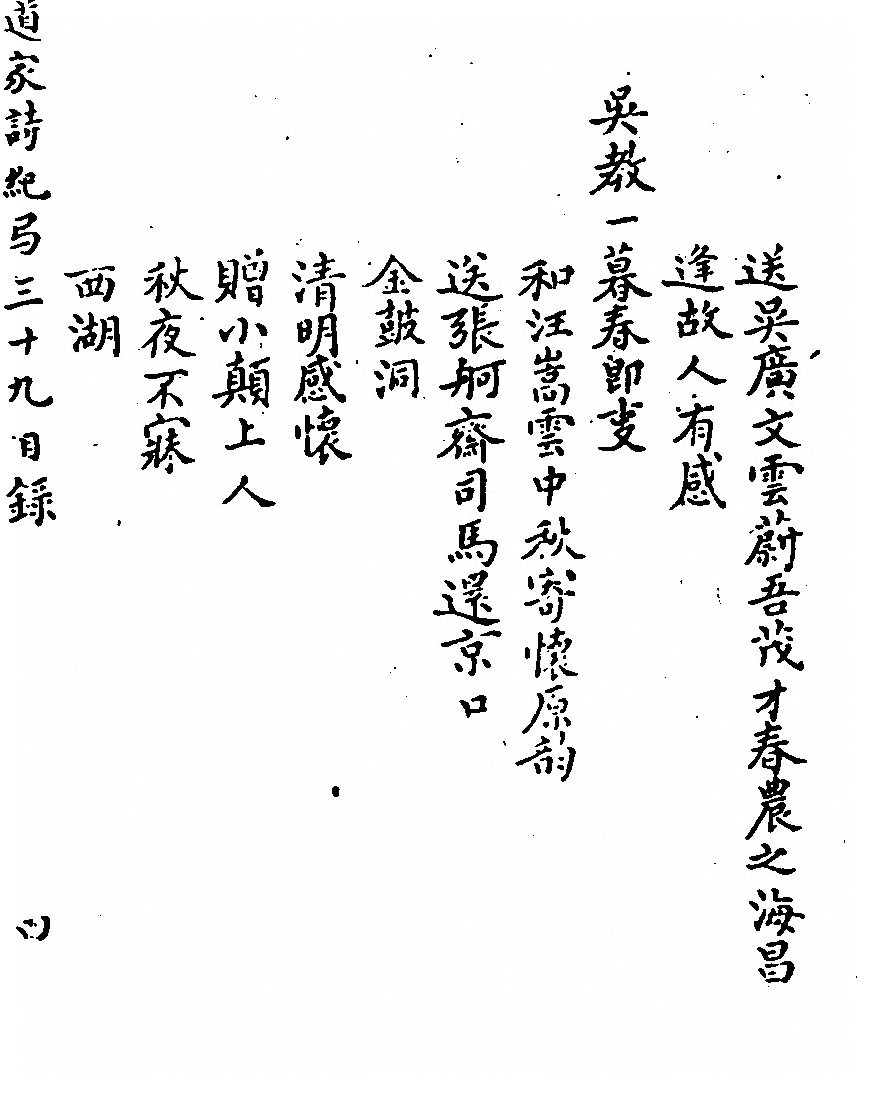 送吳廣文雲蔚吾茂才春農之海昌
逢故人有感
吳教一暮春即事
和汪嵩雲中秋寄懷原韵
送張舸齋司馬還京口
金鼓洞
清明感懷
贈小顛上人
秋夜不寐
西湖
道家詩紀弓三十九目錄
四